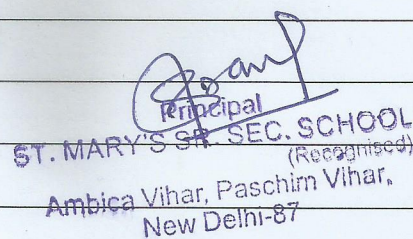 Principal
ST. MARY'S SR. SEC. SCHOOL
(Recognised)
Ambica Vihar, Paschim Vihar,
New Delhi-87